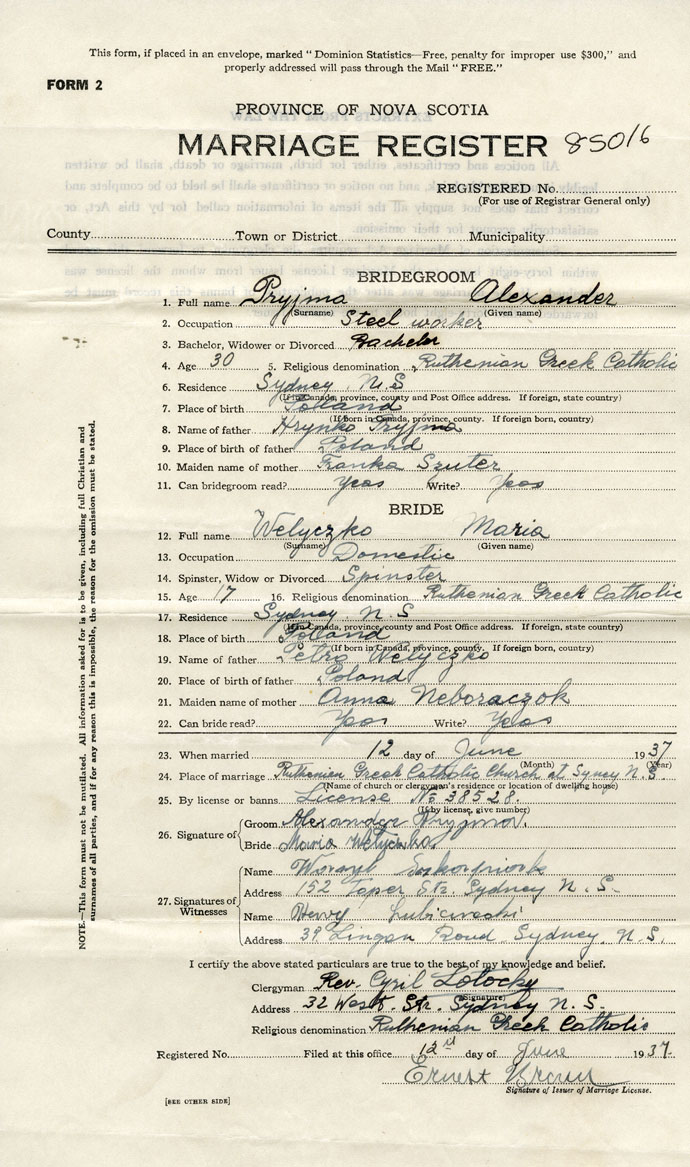 This form, if placed in an envelope, marked "Dominion Statistics—Free, penalty for improper use $300," and
properly addressed will pass through the Mail "FREE."
FORM 2
PROVINCE OF NOVA SCOTIA
MARRIAGE REGISTER 85016
REGISTERED No.
(For use of Registrar General only)
County Town or District Municipality
BRIDEGROOM
1. Full name Pryjma Alexander
(Surname) (Given name)
2. Occupation Steel worker
3. Bachelor, Widower or Divorced Bachelor
4. Age 30 5. Religious denomination Ruthenian Greek Catholic
6. Residence Sydney N.S
(If in Canada, province, county and Post Office address. If foreign, state country)
7. Place of birth Polland
(If born in Canada, province, county. If foreign born, country)
8. Name of father Hrynko Pryjma
9. Place of birth of father Poland
10. Maiden name of mother Franka Szuter
11. Can bridegroom read? Yeas Write? Yeas
BRIDE
12. Full name Welyczko Maria
(Surname) (Given name)
13. Occupation Domestic
14. Spinster, Widow or Divorced Spinster
15. Age 17 16. Religious denomination Ruthenian Greek Catholic
17. Residence Sydney N. S
(If in Canada, province, county and Post Office address. If foreign, state country)
18. Place of birth Polland
(If born in Canada, province, county. If foreign born, country)
19. Name of father Petro Welyczko
20. Place of birth of father Poland
21. Maiden name of mother Anna Neboraczok
22. Can bride read? Yeas Write? Yeas
23. When married 12 day of June 1937
(Month) (Year)
24. Place of marriage Ruthenien Greek Catholic Church at Syney N.S.
(Name of church or clergyman's residence or location of dwelling house)
25. By license or banns License No 38528.
(If by license, give number)
26. Signature of
Groom Alexander Pryjma.
Bride Maria Welyczko
27. Signatures of Witnesses
Name
Address 152 Taper Str. Sydney N. S.
Name
Address 39 Lingan Roud Sydney. N. S.
I certify the above stated particulars are true to the best of my knowledge and belief.
Clergyman Rev. Cyril Lotocky
(Signature)
Address 32 West. Str. Sydney N. S.
Religious denomination Ruthenian Greek Catholic
Registered No. Filed at this office 12 day of June 1937.
Ernest Brown
Signature of Issuer of Marriage License.
[SEE OTHER SIDE]
NOTE.—This form must not be mutilated. All information asked for is to be given, including full Christian and
surnames of all parties, and if for any reason this is impossible, the reason for the omission must be stated.